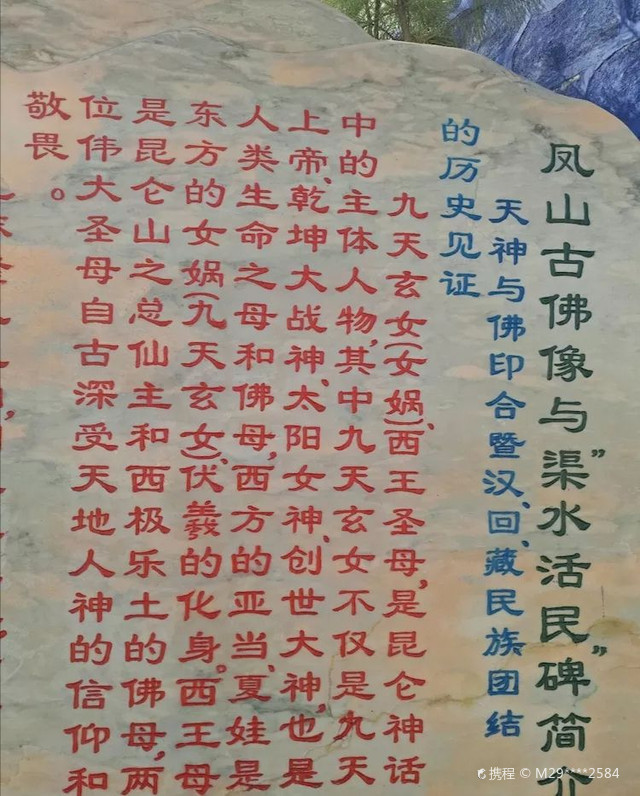 凤山古佛像与"渠水活民"碑简介
天神与佛印合暨汉、回、藏民族团结
的历史见证
九天玄女(女娲)、西王圣母,是昆仑神话
中的主体人物,其中九天玄女不仅是九天
上帝、乾坤大战神、太阳女神、创世大神,也是
人类生命之母和佛母,西方的亚当、夏娃是
东方的女娲(九天玄女)、伏羲的化身。西王母
是昆仑山之总仙主和西极乐土的佛母,两
位伟大圣母自古深受天地人神的信仰和
敬畏。
携程 © M29****2584